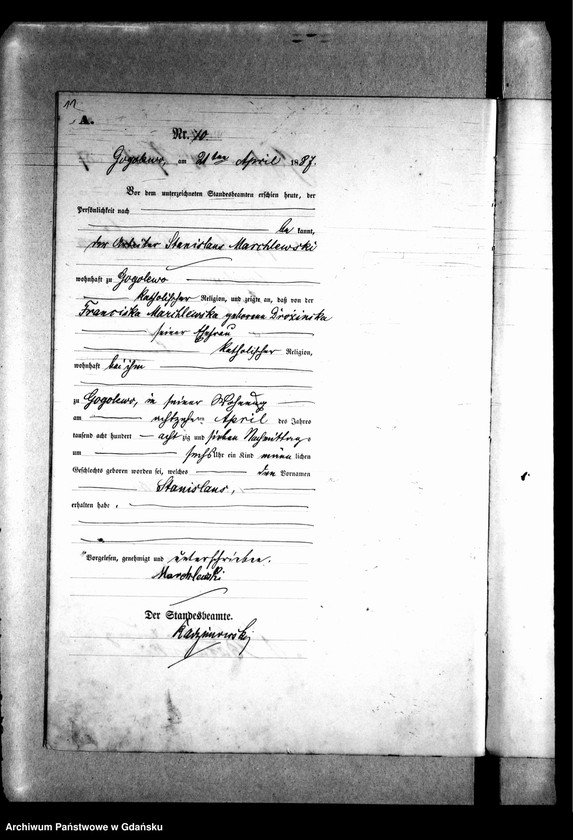 A.
Nr. 10.
Gogolewo, am 21ten April 1887.
Vor dem unterzeichneten Standesbeamten erschien heute, der
Persönlichkeit nach
be kannt,
der Arbeiter Stanislaus Marchlewski
wohnhaft zu Gogolewo
katholischer Religion, und zeigte an, daß von der
Franciska Marchlewska geborene
seiner Ehefrau
katholischer Religion,
wohnhaft bei ihm
zu Gogolewo, in seiner Wohnung
am achtzehn April des Jahres
tausend acht hundert acht zig und sieben Nachmittags
um sechs Uhr ein Kind männ lichen
Geschlechts geboren worden sei, welches den Vornamen
Stanislaus,
erhalten habe,
Vorgelesen, genehmigt und unterschrieben.
Marchlewski
Der Standesbeamte.
Archiwum Państwowe w Gdańsku